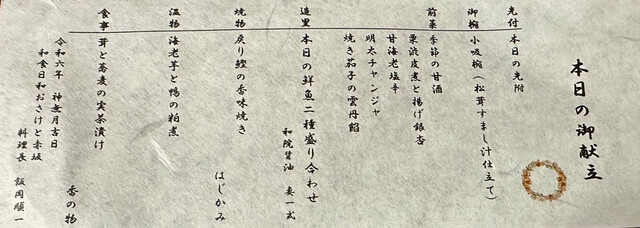 本日の御献立
先付 本日の先附
御椀 小吸椀(松茸すまし汁仕立て)
前菜 季節の甘酒
栗渋皮煮と揚げ銀杏
甘海老塩辛
明太チャンジャ
焼き茄子の雲丹餡
造里 本日の鮮魚二種盛り合わせ
和院醤油 妻一式
焼物 戻り鰹の香味焼き
はじかみ
温物 海老芋と鴨の粕煮
食事 茸と蕎麦の実茶漬け
香の物
令和六年 神無月吉日
和食日和おさけと赤坂
料理長 飯岡順一